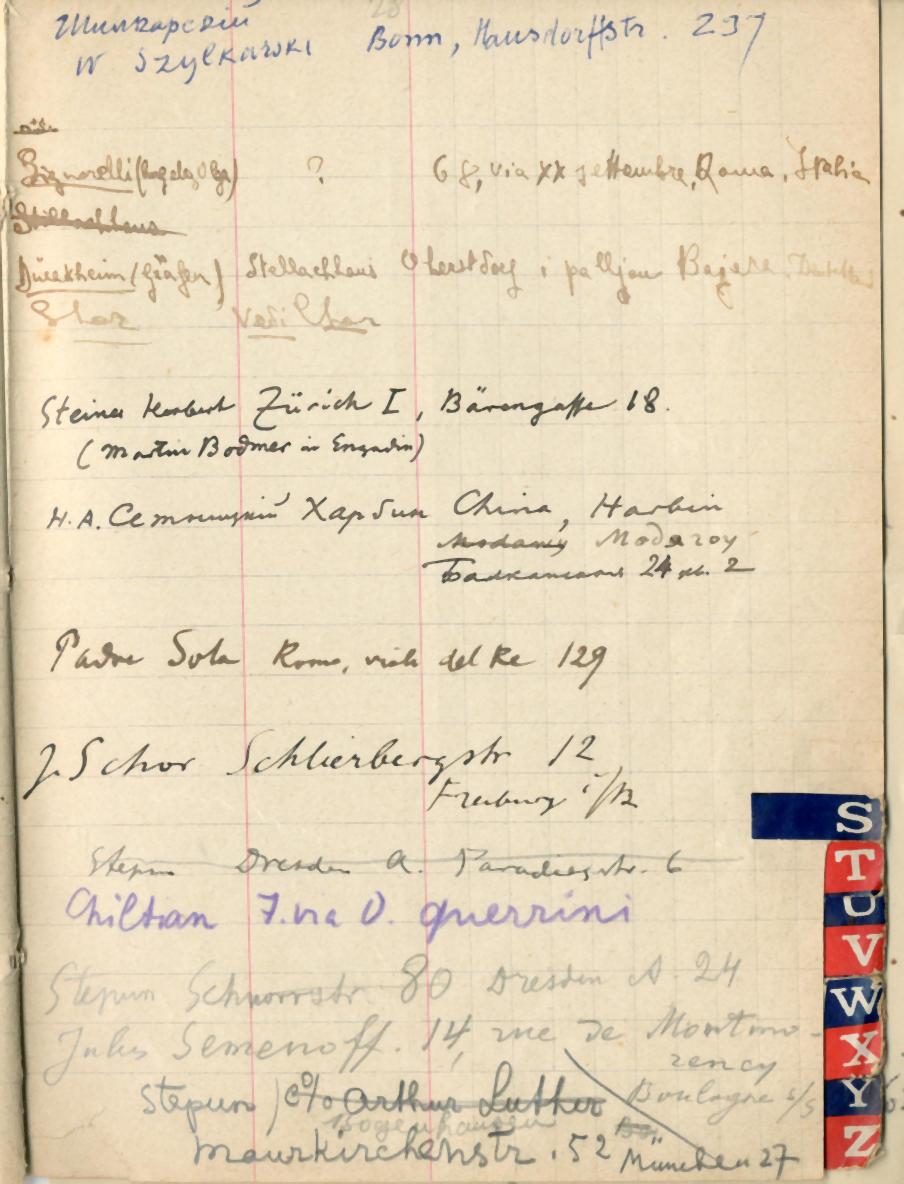 28
Шилкарский
W Szylkarski Bonn, Hausdorffstr. 237
Signorelli ( Olga) ? 68, via XX settembre, Roma, Italia
Stillachhaus
Dürckheim (Gräfin) Stellachhaus Oberstdorf i Bajern
Shor Vedi Schor
Steiner Herbert Zürich I, Bärengasse 18.
(Martin Bodmer in Engadin)
Н.А. Сетницкий Харбин China, Harbin
Modagoy
24 кв. 2
Padre Sola Roma, viale del Re 129
J. Schor Schlierbergstr 12
Freiburg i/B
Stepun Dresden A. Paradiesstr. 6
Chiltian 7. via O. Guerrini
Stepun Schnorrstr 80 Dresden A. 24
Jules Semenoff. 14, rue de Montmo-
rency
Boulogne s/S
Stepun c/o Arthur Luther
Bogenhausen
Mauerkirchenstr. 52 München 27
S
T
U
V
W
X
Y
Z